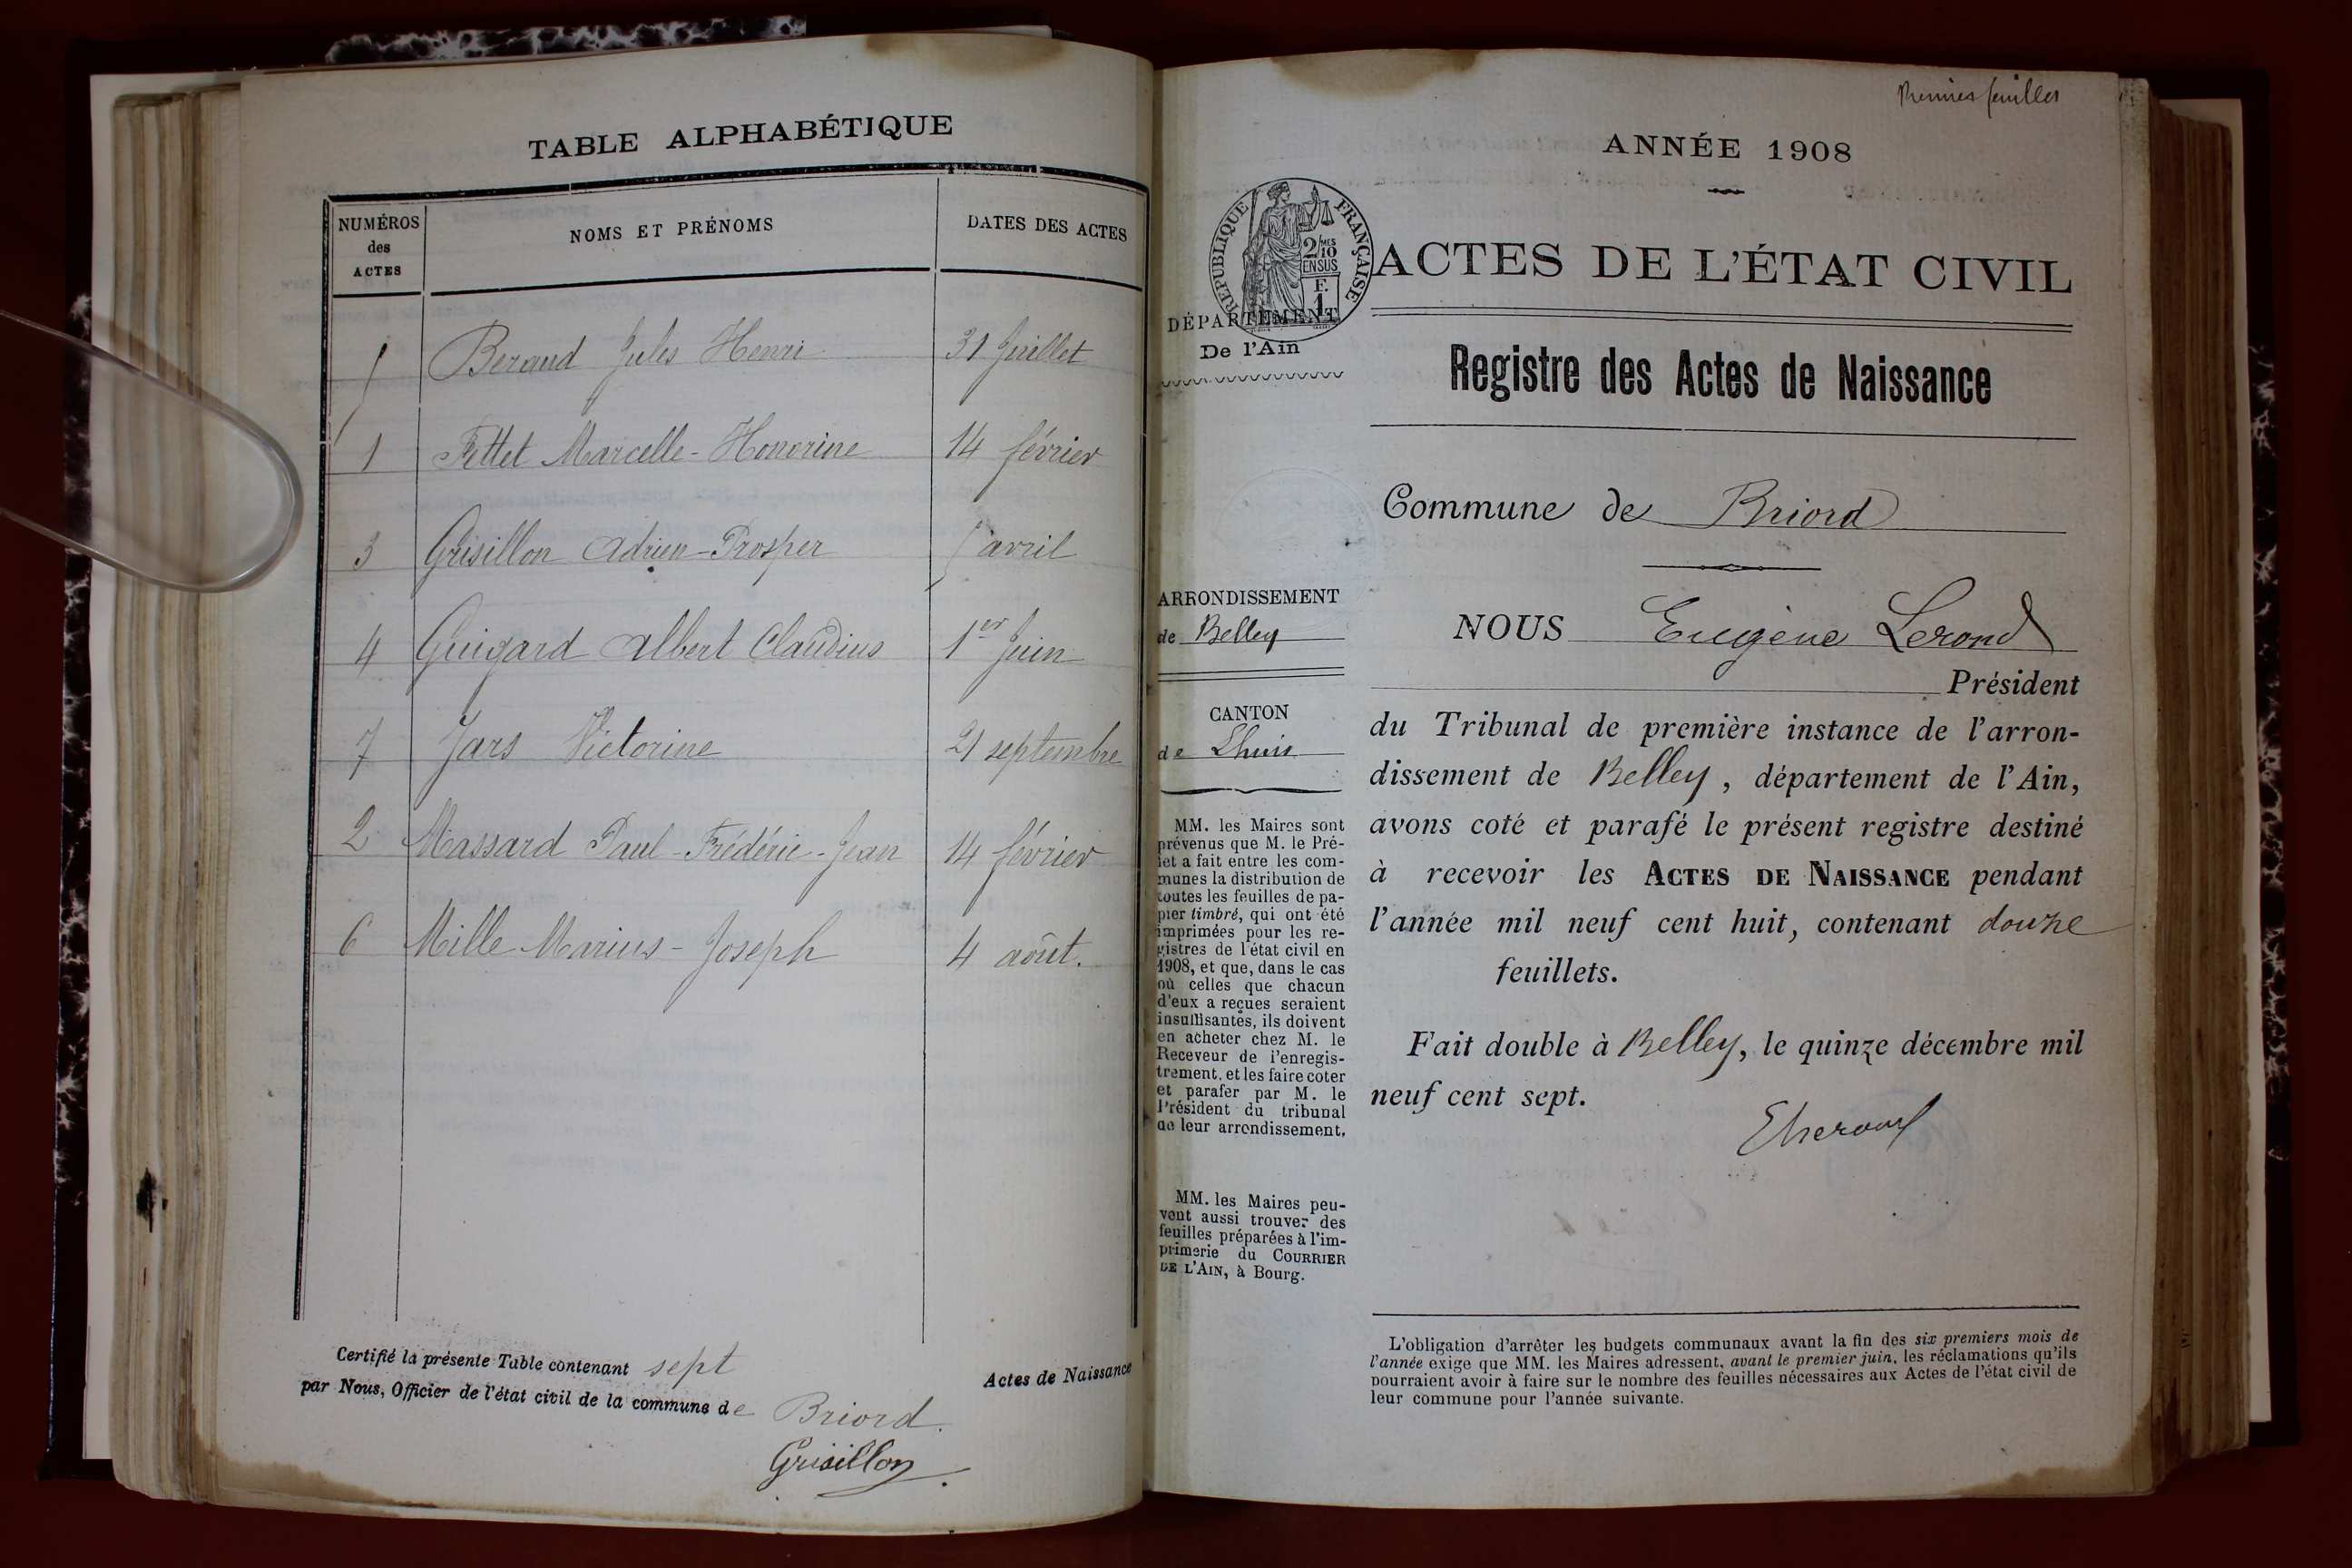 TABLE ALPHABÉTIQUE
NUMÉROS des ACTES
NOMS ET PRÉNOMS
DATES DES ACTES
5 Beraud Jules Henri 31 Juillet
1 Fettet Marcelle-Honorine 14 février
3 Grisillon Adrien-Prosper 5 avril
4 Guigard Albert Claudius 1er Juin
7 Jars Victorine 21 septembre
2 Massard Paul-Frédéric-Jean 14 février
6 Mille Marius-Joseph 4 août.
Certifié la présente Table contenant sept Actes de Naissance
par Nous, Officier de l'état civil de la commune de Briord.
Grisillon
Premier feuillet
ANNÉE 1908
RÉPUBLIQUE FRANÇAISE
2/10 MES
EN SUS
F.
1
ACTES DE L'ÉTAT CIVIL
DÉPARTEMENT
De l'Ain
Registre des Actes de Naissance
Commune de Briord
ARRONDISSEMENT
de Belley
CANTON
de Lhuis
MM. les Maires sont
prévenus que M. le Pré-
fet a fait entre les com-
munes la distribution de
toutes les feuilles de pa-
pier timbré, qui ont été
imprimées pour les re-
gistres de l'état civil en
1908, et que, dans le cas
où celles que chacun
d'eux a reçues seraient
insuffisantes, ils doivent
en acheter chez M. le
Receveur de l'enregis-
trement, et les faire coter
et parafer par M. le
Président du tribunal
de leur arrondissement.
MM. les Maires peu-
vent aussi trouver des
feuilles préparées à l'im-
primerie du COURRIER
DE L'AIN, à Bourg.
NOUS Eugène Lerond
Président
du Tribunal de première instance de l'arron-
dissement de Belley, département de l'Ain,
avons coté et parafé le présent registre destiné
à recevoir les ACTES DE NAISSANCE pendant
l'année mil neuf cent huit, contenant douze
feuillets.
Fait double à Belley, le quinze décembre mil
neuf cent sept.
L'obligation d'arrêter les budgets communaux avant la fin des six premiers mois de
l'année exige que MM. les Maires adressent, avant le premier juin, les réclamations qu'ils
pourraient avoir à faire sur le nombre des feuilles nécessaires aux Actes de l'état civil de
leur commune pour l'année suivante.